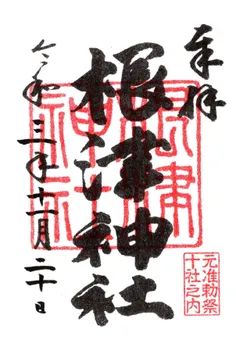 奉拝
根津神社
根津神社
元准勅祭
十社之内
令和三年十一月二十日